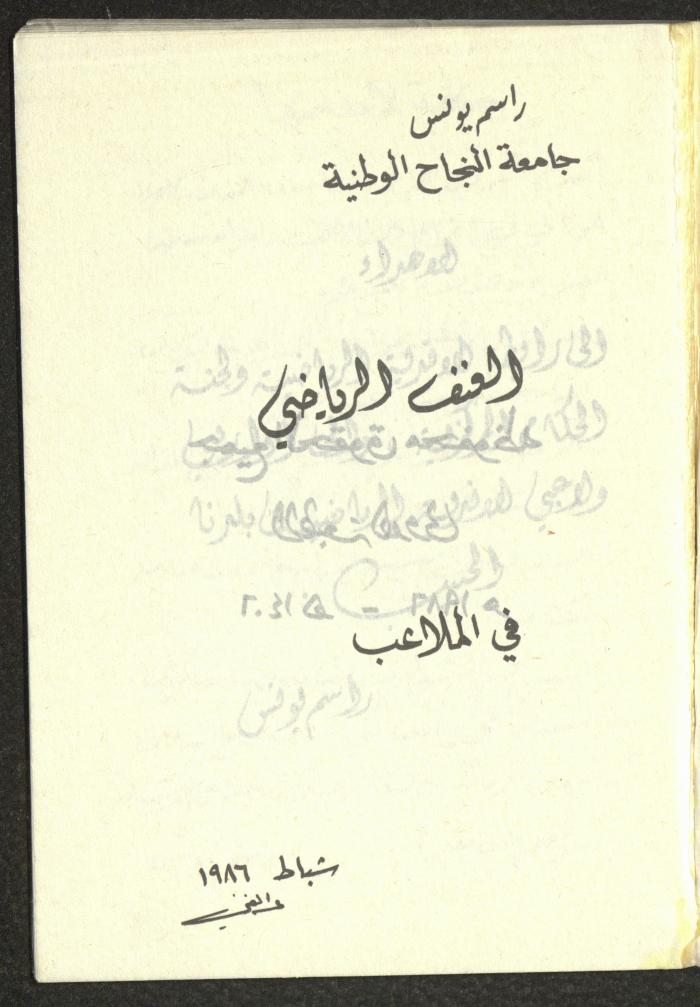 راسم يونس
جامعة النجاح الوطنية
العنف الرياضي
في الملاعب
شباط ١٩٨٦